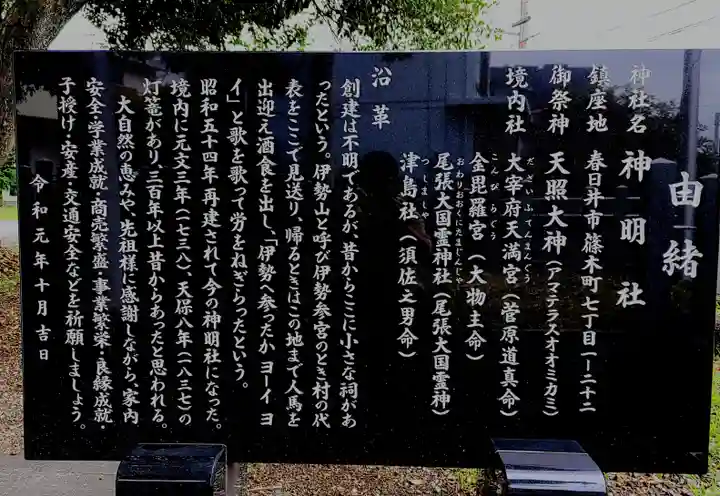 由緒
神社名 神明社
鎮座地 春日井市篠木町七丁目(一ー二十二)
御祭神 天照大神(アマテラスオオミカミ)
境内社 大宰府天満宮(菅原道真命)
だざいふてんまんぐう
金毘羅宮(大物主命)
こんぴらぐう
尾張大国霊神社(尾張大国霊神)
おわりおおくにたまじんじゃ
津島社(須佐之男命)
つしましゃ
沿革
創建は不明であるが、昔からここに小さな祠があ
ったという。伊勢山と呼び伊勢参宮のとき村の代
表をここで見送り、帰るときはこの地まで人馬を
出迎え酒食を出し、「伊勢へ参ったか ヨーイ ヨ
イ」と歌を歌って労をねぎらったという。
昭和五十四年 再建されて今の神明社になった。
境内に元文三年(一七三八)、天保八年(一八三七)の
灯篭があり、三百年以上昔からあったと思われる。
大自然の恵みや、先祖様に感謝しながら、家内
安全・学業成就・商売繁盛・事業繁栄・良縁成就・
子授け・安産・交通安全などを祈願しましょう。
令和元年十月吉日